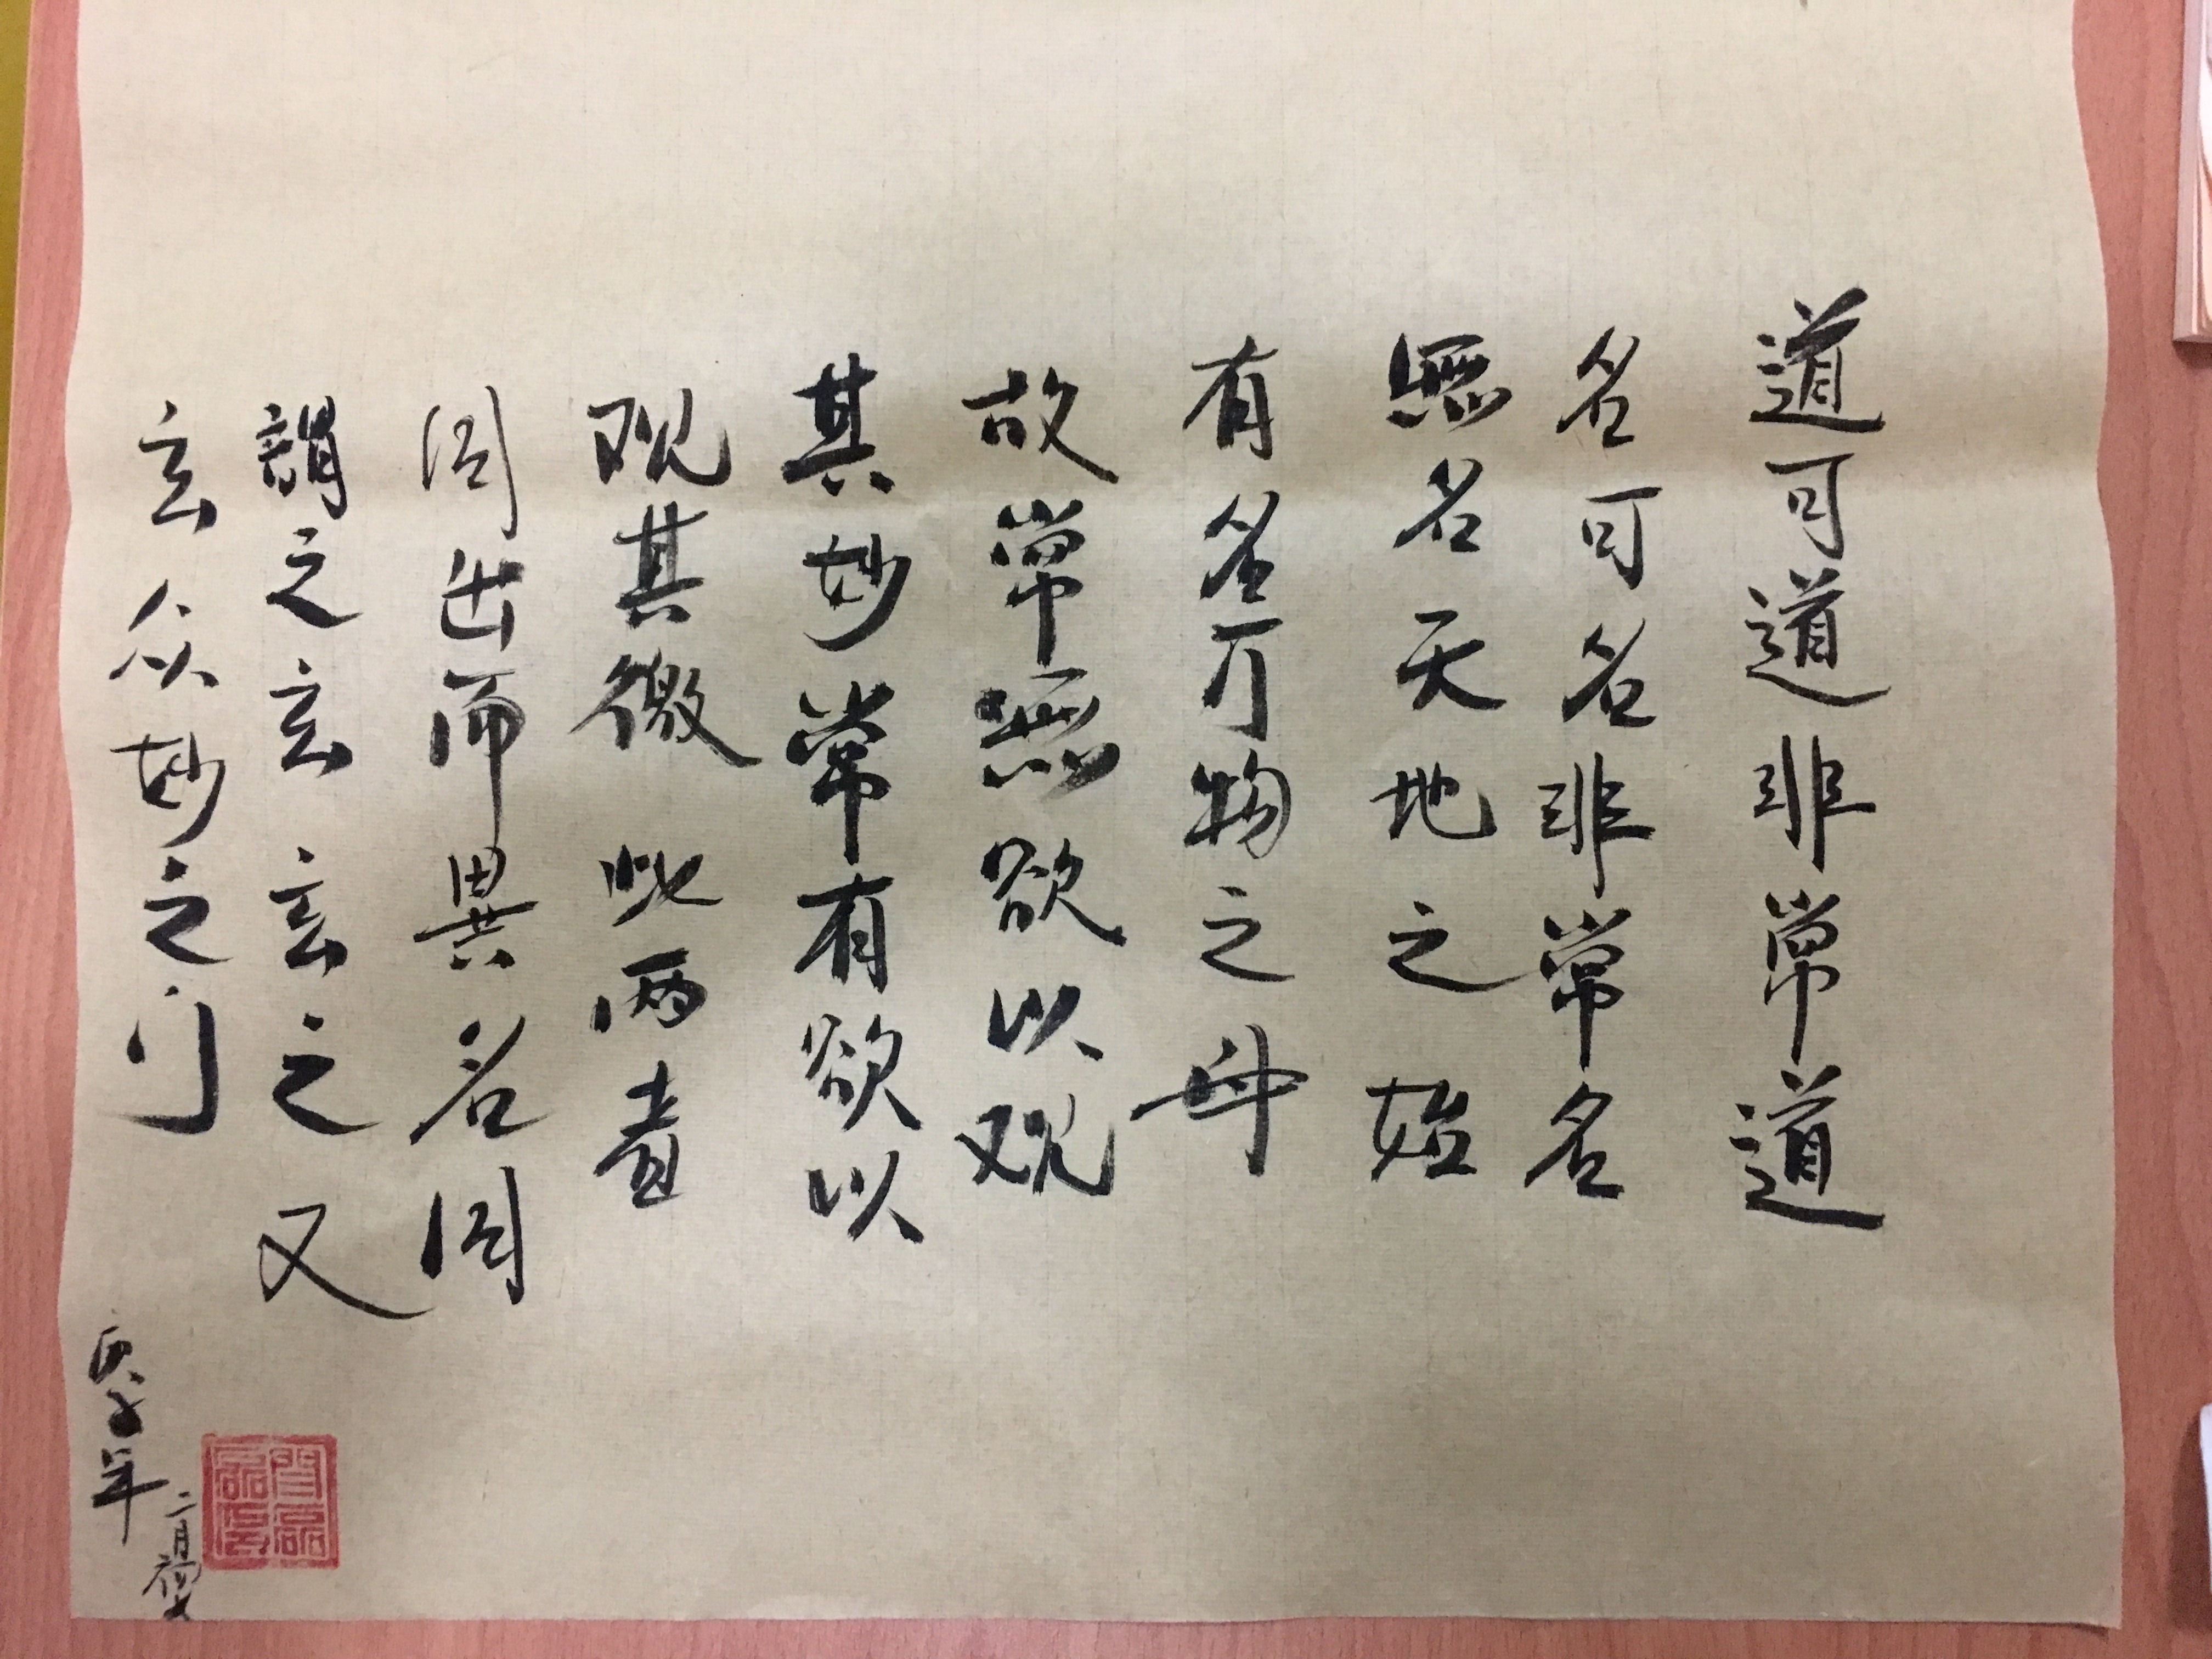 道可道非常道
名可名非常名
無名天地之始
有名万物之母
故常無欲以观
其妙常有欲以
观其徼此两者
同出而異名同
謂之玄玄之又
玄众妙之门
庚子年
二月